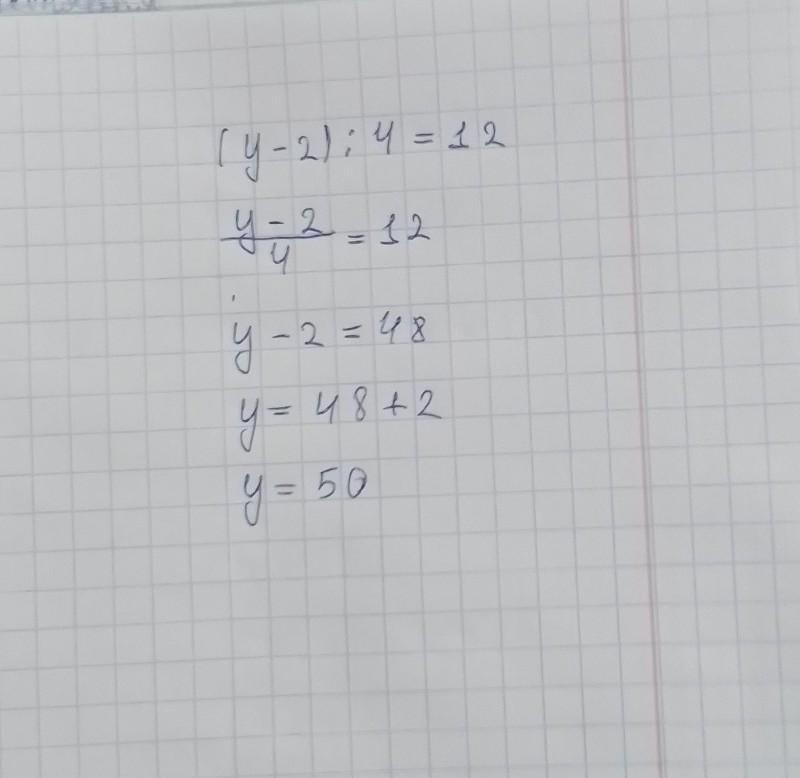 (y-2):4=12
y-2/4=12
y-2=48
y=48+2
y=50